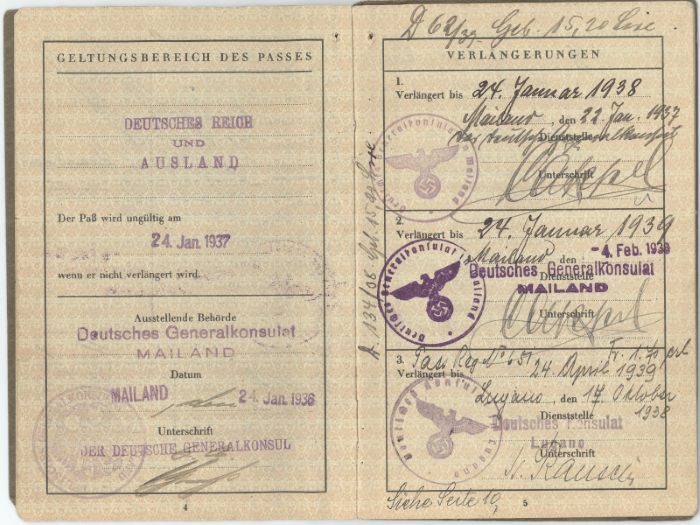 GELTUNGSBEREICH DES PASSES
DEUTSCHES REICH
UND
AUSLAND
Der Paß wird ungültig am
24. Jan. 1937
wenn er nicht verlängert wird.
Ausstellende Behörde
Deutsches Generalkonsulat
MAILAND
Datum
MAILAND 24. Jan. 1936
Unterschrift
DER DEUTSCHE GENERALKONSUL
4
D 62/37 Geb. 15,20 Lire.
VERLÄNGERUNGEN
1.
Verlängert bis 24. Januar 1938
Mailand, den 22. Jan. 1937
Das Deutsche Generalkonsulat
Dienststelle
Unterschrift
Deutsches Generalkonsulat Mailand
2.
Verlängert bis 24. Januar 1939
Mailand den -4. Feb. 1938
Deutsches Generalkonsulat
Dienststelle
MAILAND
Unterschrift
Deutsches Generalkonsulat Mailand
3. Pass Reg. No
Verlängert bis 24. April 1939
Lugano, den 17. Oktober
1938
Dienststelle
Deutsches Konsulat
Lugano
Unterschrift
Deutsches Konsulat Lugano
Siehe Seite 10
5